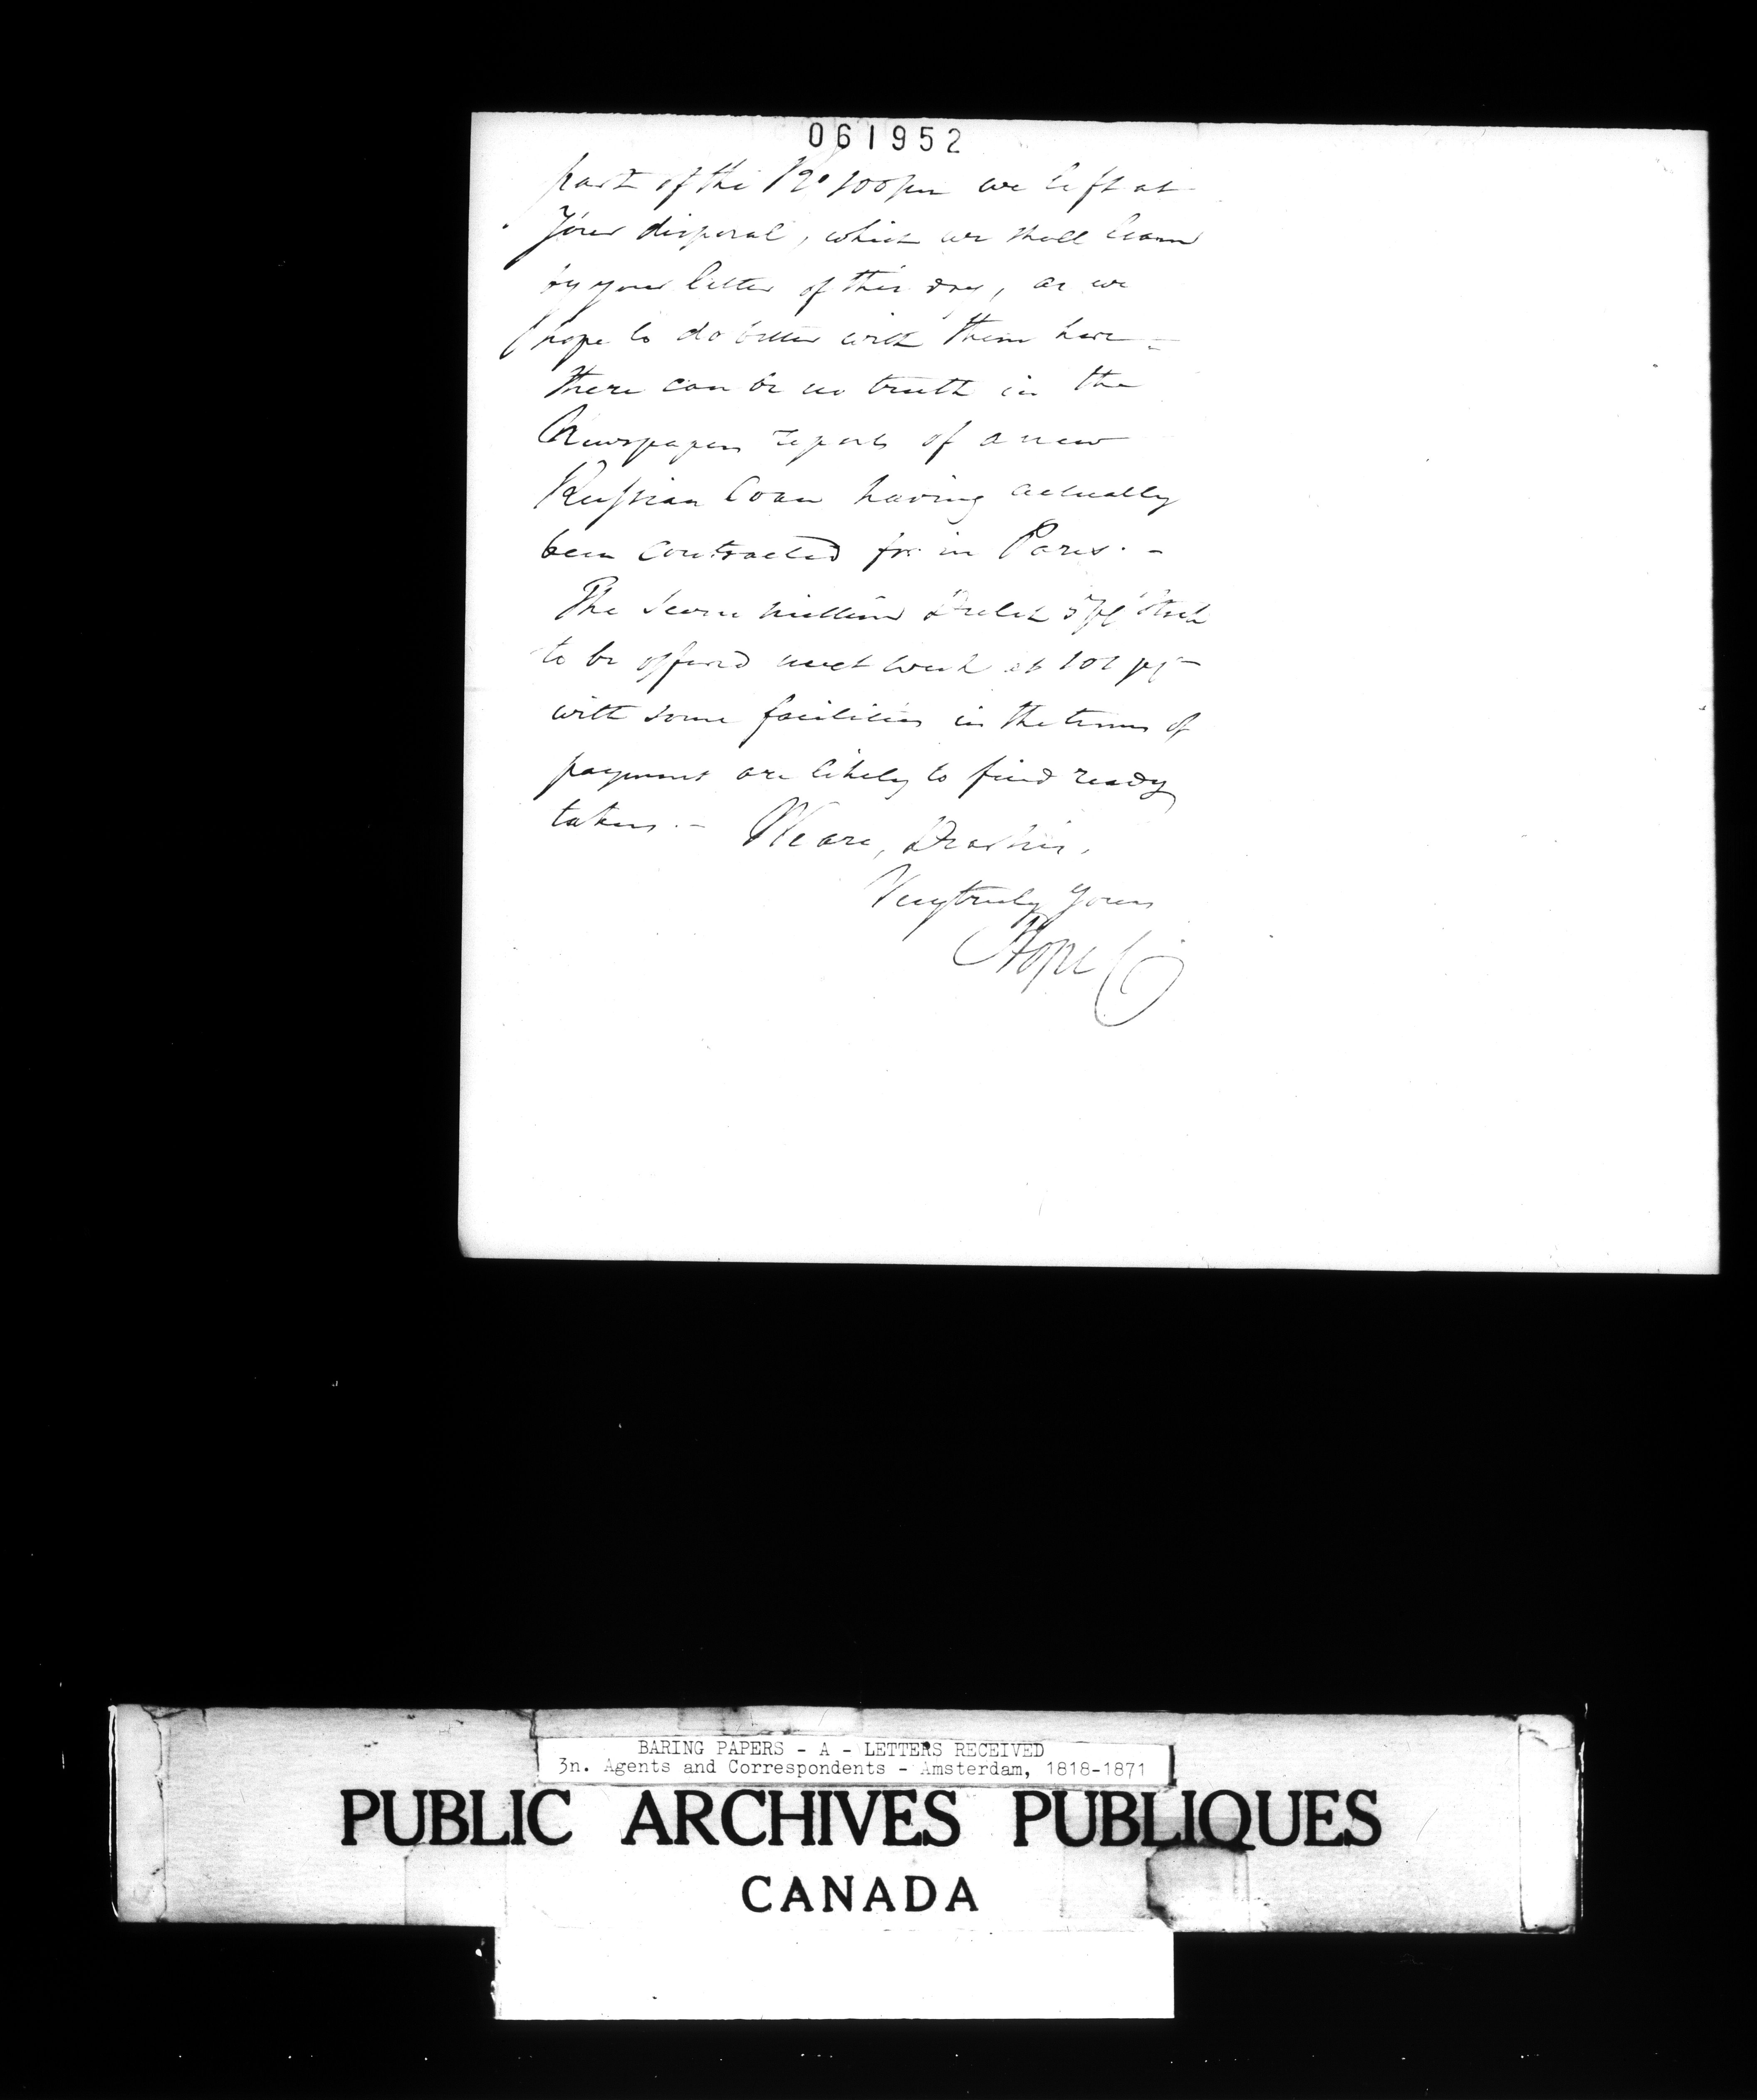 061952
part of the Ro 100/m we left at
Your disposal, which we shall learn
by your letter of this day, as we
hope to do better with them here -
There can be no truth in the
Newspapers reports of a new
Russian Loan having actually
been contracted for in Paris. -
The seven millions Dutch 5 pC Stock
to be offered next week at 101 pC
with some facilities in the terms of
payment are likely to find ready
takers. - We are, Dear Sirs,
Very truly Yours
Hope Co
BARING PAPERS - A - LETTERS RECEIVED
3n. Agents and Correspondents - Amsterdam, 1818-1871
PUBLIC ARCHIVES PUBLIQUES
CANADA